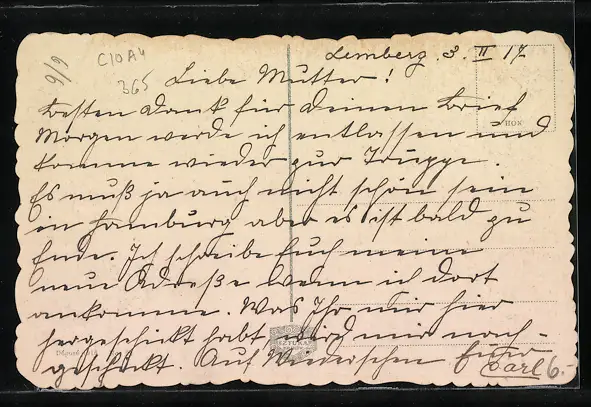 9/9
C10A4
365
Lemberg. 3. II 17
Liebe Mutter!
Besten Dank für Deinen Brief
Morgen werde ich entlassen und
komme wieder zur Truppe.
Es muß ja auch nicht schön sein
in Hamburg aber es ist bald zu
Ende. Ich schreibe Euch meine
neue Adresse wenn ich dort
ankomme. Was Ihr mir hier
hergeschickt habt wird mir nach-
geschickt. Auf Wiedersehen Euer
Carl
6.-
SZTUKA